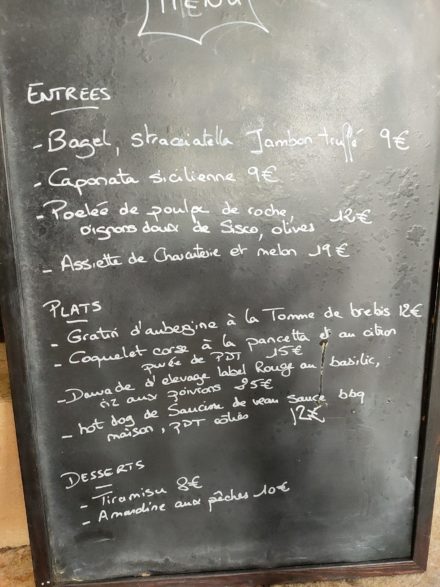 MENU
ENTREES
- Bagel, stracciatella Jambon truffé 9€
- Caponata sicilienne 9€
- Poelée de poulpe de roche, 12€
oignons doux de Sisco, olives
- Assiette de Charcuterie et melon 19€
PLATS
- Gratin d'aubergine à la Tomme de brebis 12€
- Coquelet corse à la pancetta et au citron
purée de PDT 15€
- Daurade d'élevage label Rouge au basilic,
riz aux poivrons 25€
- hot dog de Saucisse de veau sauce bbq
maison, PDT 12€
DESSERTS
- Tiramisu 8€
- Amandine aux pêches 10€